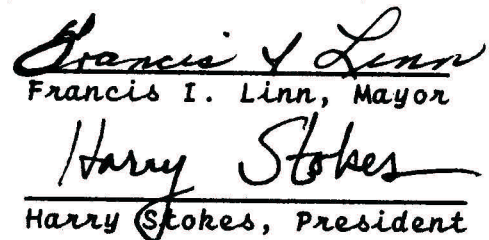 Francis I Linn
Francis I. Linn, Mayor
Harry Stokes
Harry Stokes, President